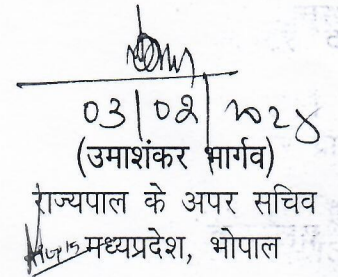 03/02/2024
(उमाशंकर भार्गव)
राज्यपाल के अपर सचिव
मध्यप्रदेश, भोपाल